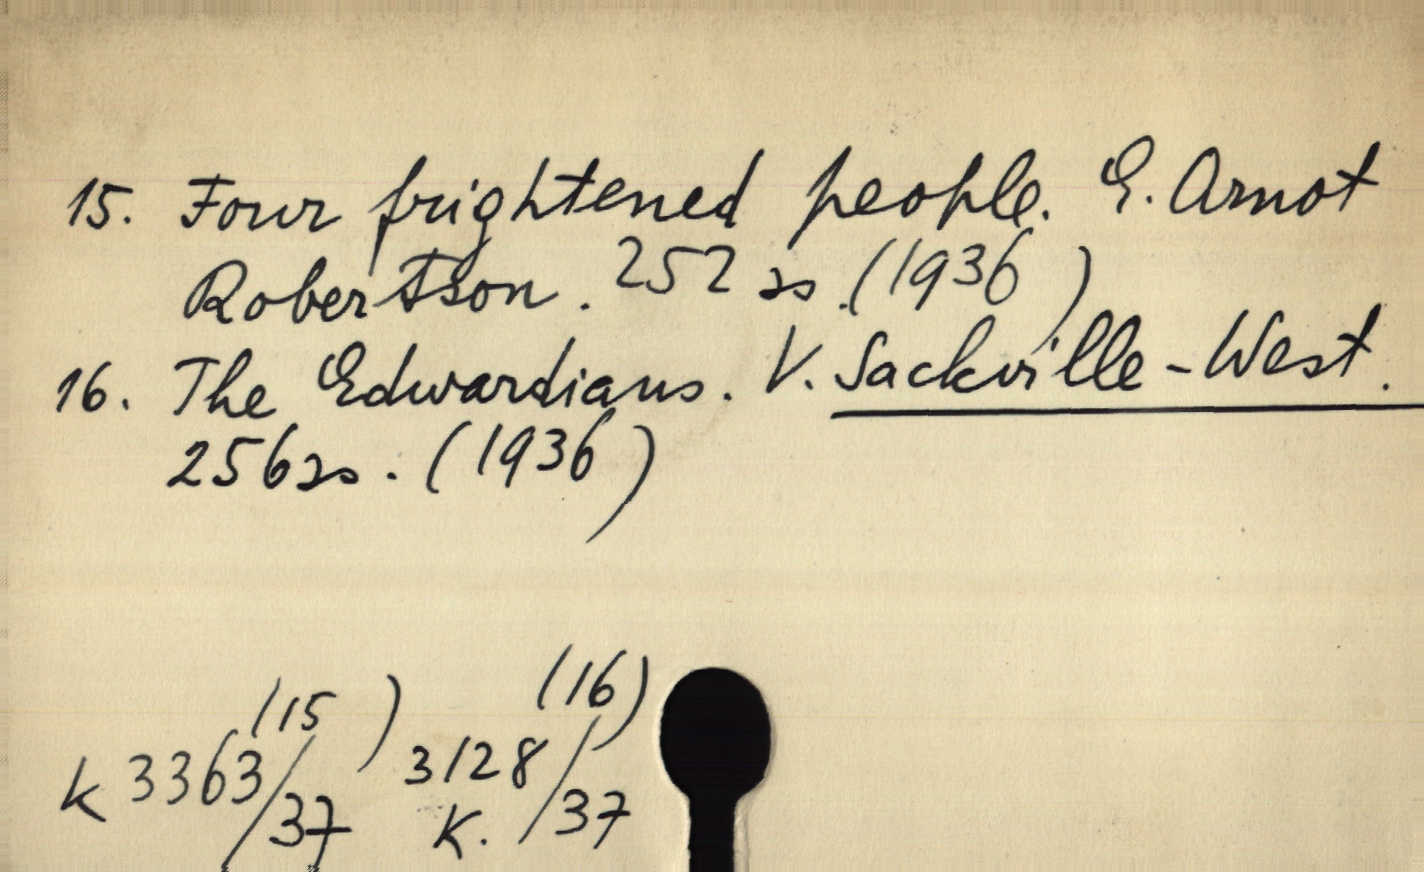 15. Four frightened people. E. Arnot
Robertson. 252 is. (1936)
16. The Edwardians. V. Sackville-West.
256 is. (1936)
(15) (16)
K 3363/37 3128/37
K.